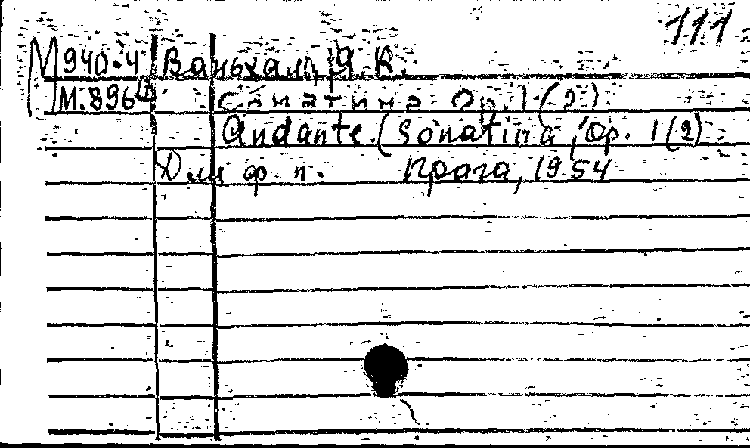 111
М 940-4 Ваньхаль, Я. К.
М.896 Сонатина Ор. 1 (2)
Andante. (Sonatina, Op. 1 (2)
Для ф. п. Прага, 1954